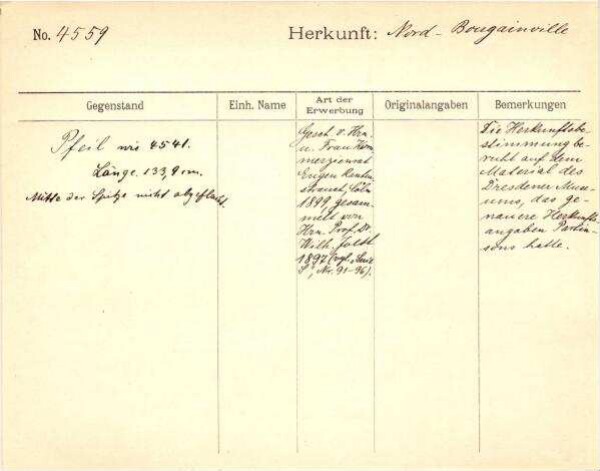 No. 4559
Herkunft: Nord-Bougainville
Gegenstand
Einh. Name
Art der Erwerbung
Originalangaben
Bemerkungen
Pfeil wie 4541.
Länge 133,9 cm.
Mitte der Spitze nicht abgeflacht.
Gesch. v. Hrn.
u. Frau Kom
merzienrat
Eugen Rauten
strauch, Cöln
1899, gesam
melt von
Hrn. Prof. Dr.
Wilh. Joest
1897 (vgl.
S, Nr. 91-96).
Die Herkunftsbe-
stimmung be-
ruht auf dem
Material des
Dresdener Muse-
ums, das ge-
nauere Herkunfts-
angaben Parkin-
sons hatte.